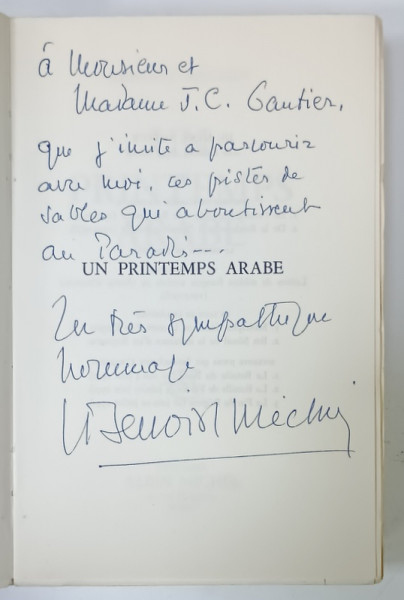 à Monsieur et
Madame J.C. Gautier,
que j'invite a parcourir
avec moi, ces pistes de
sables qui aboutissent
au Paradis---
UN PRINTEMPS ARABE
En très sympathique
hommage
Benoist Méchin